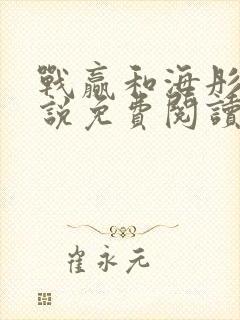 戰贏和海彤
說免費閱讀
崔永元